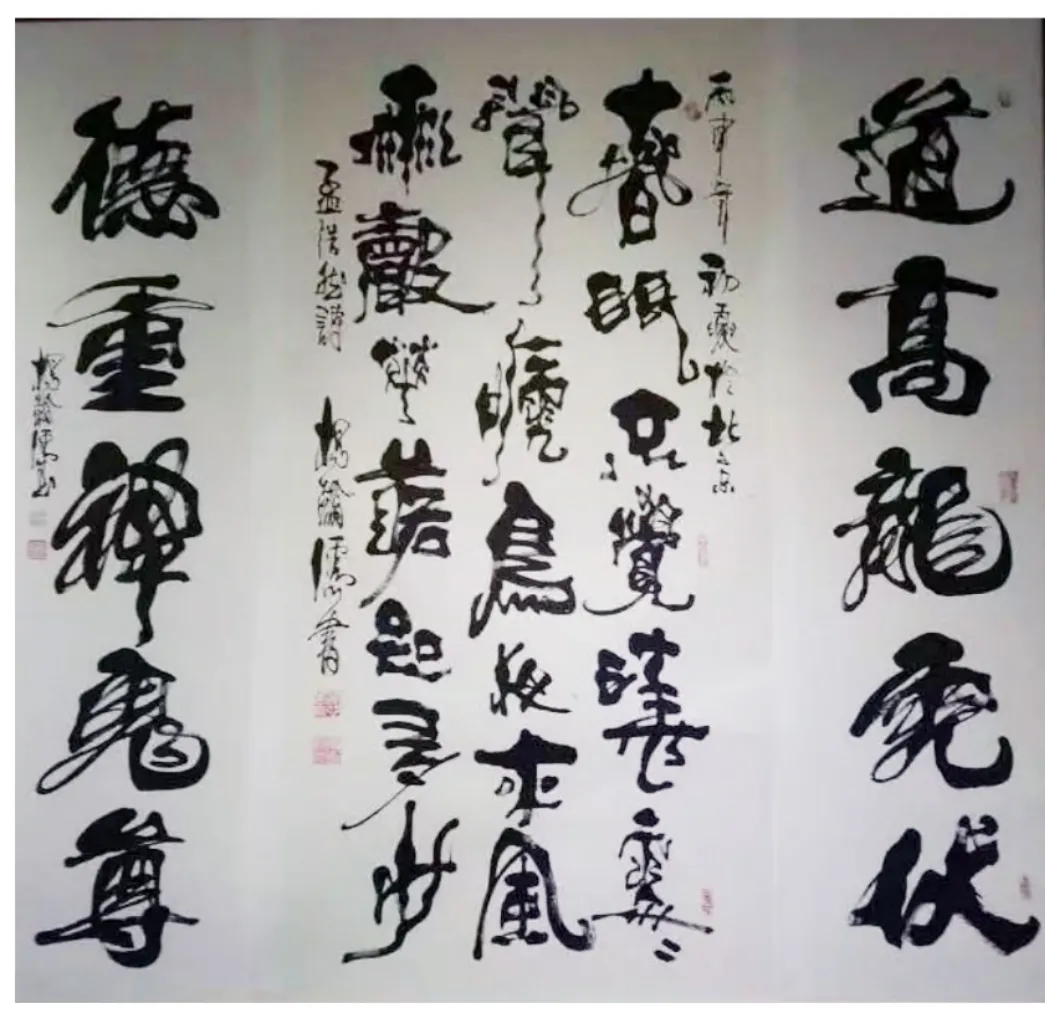 道高龍虎伏
丙申年初夏於北京
春眠不覺曉處々
聞嗁鳥夜來風
雨聲花落知多少
孟浩然詩 楊儒書
德重神鬼尊
楊儒書